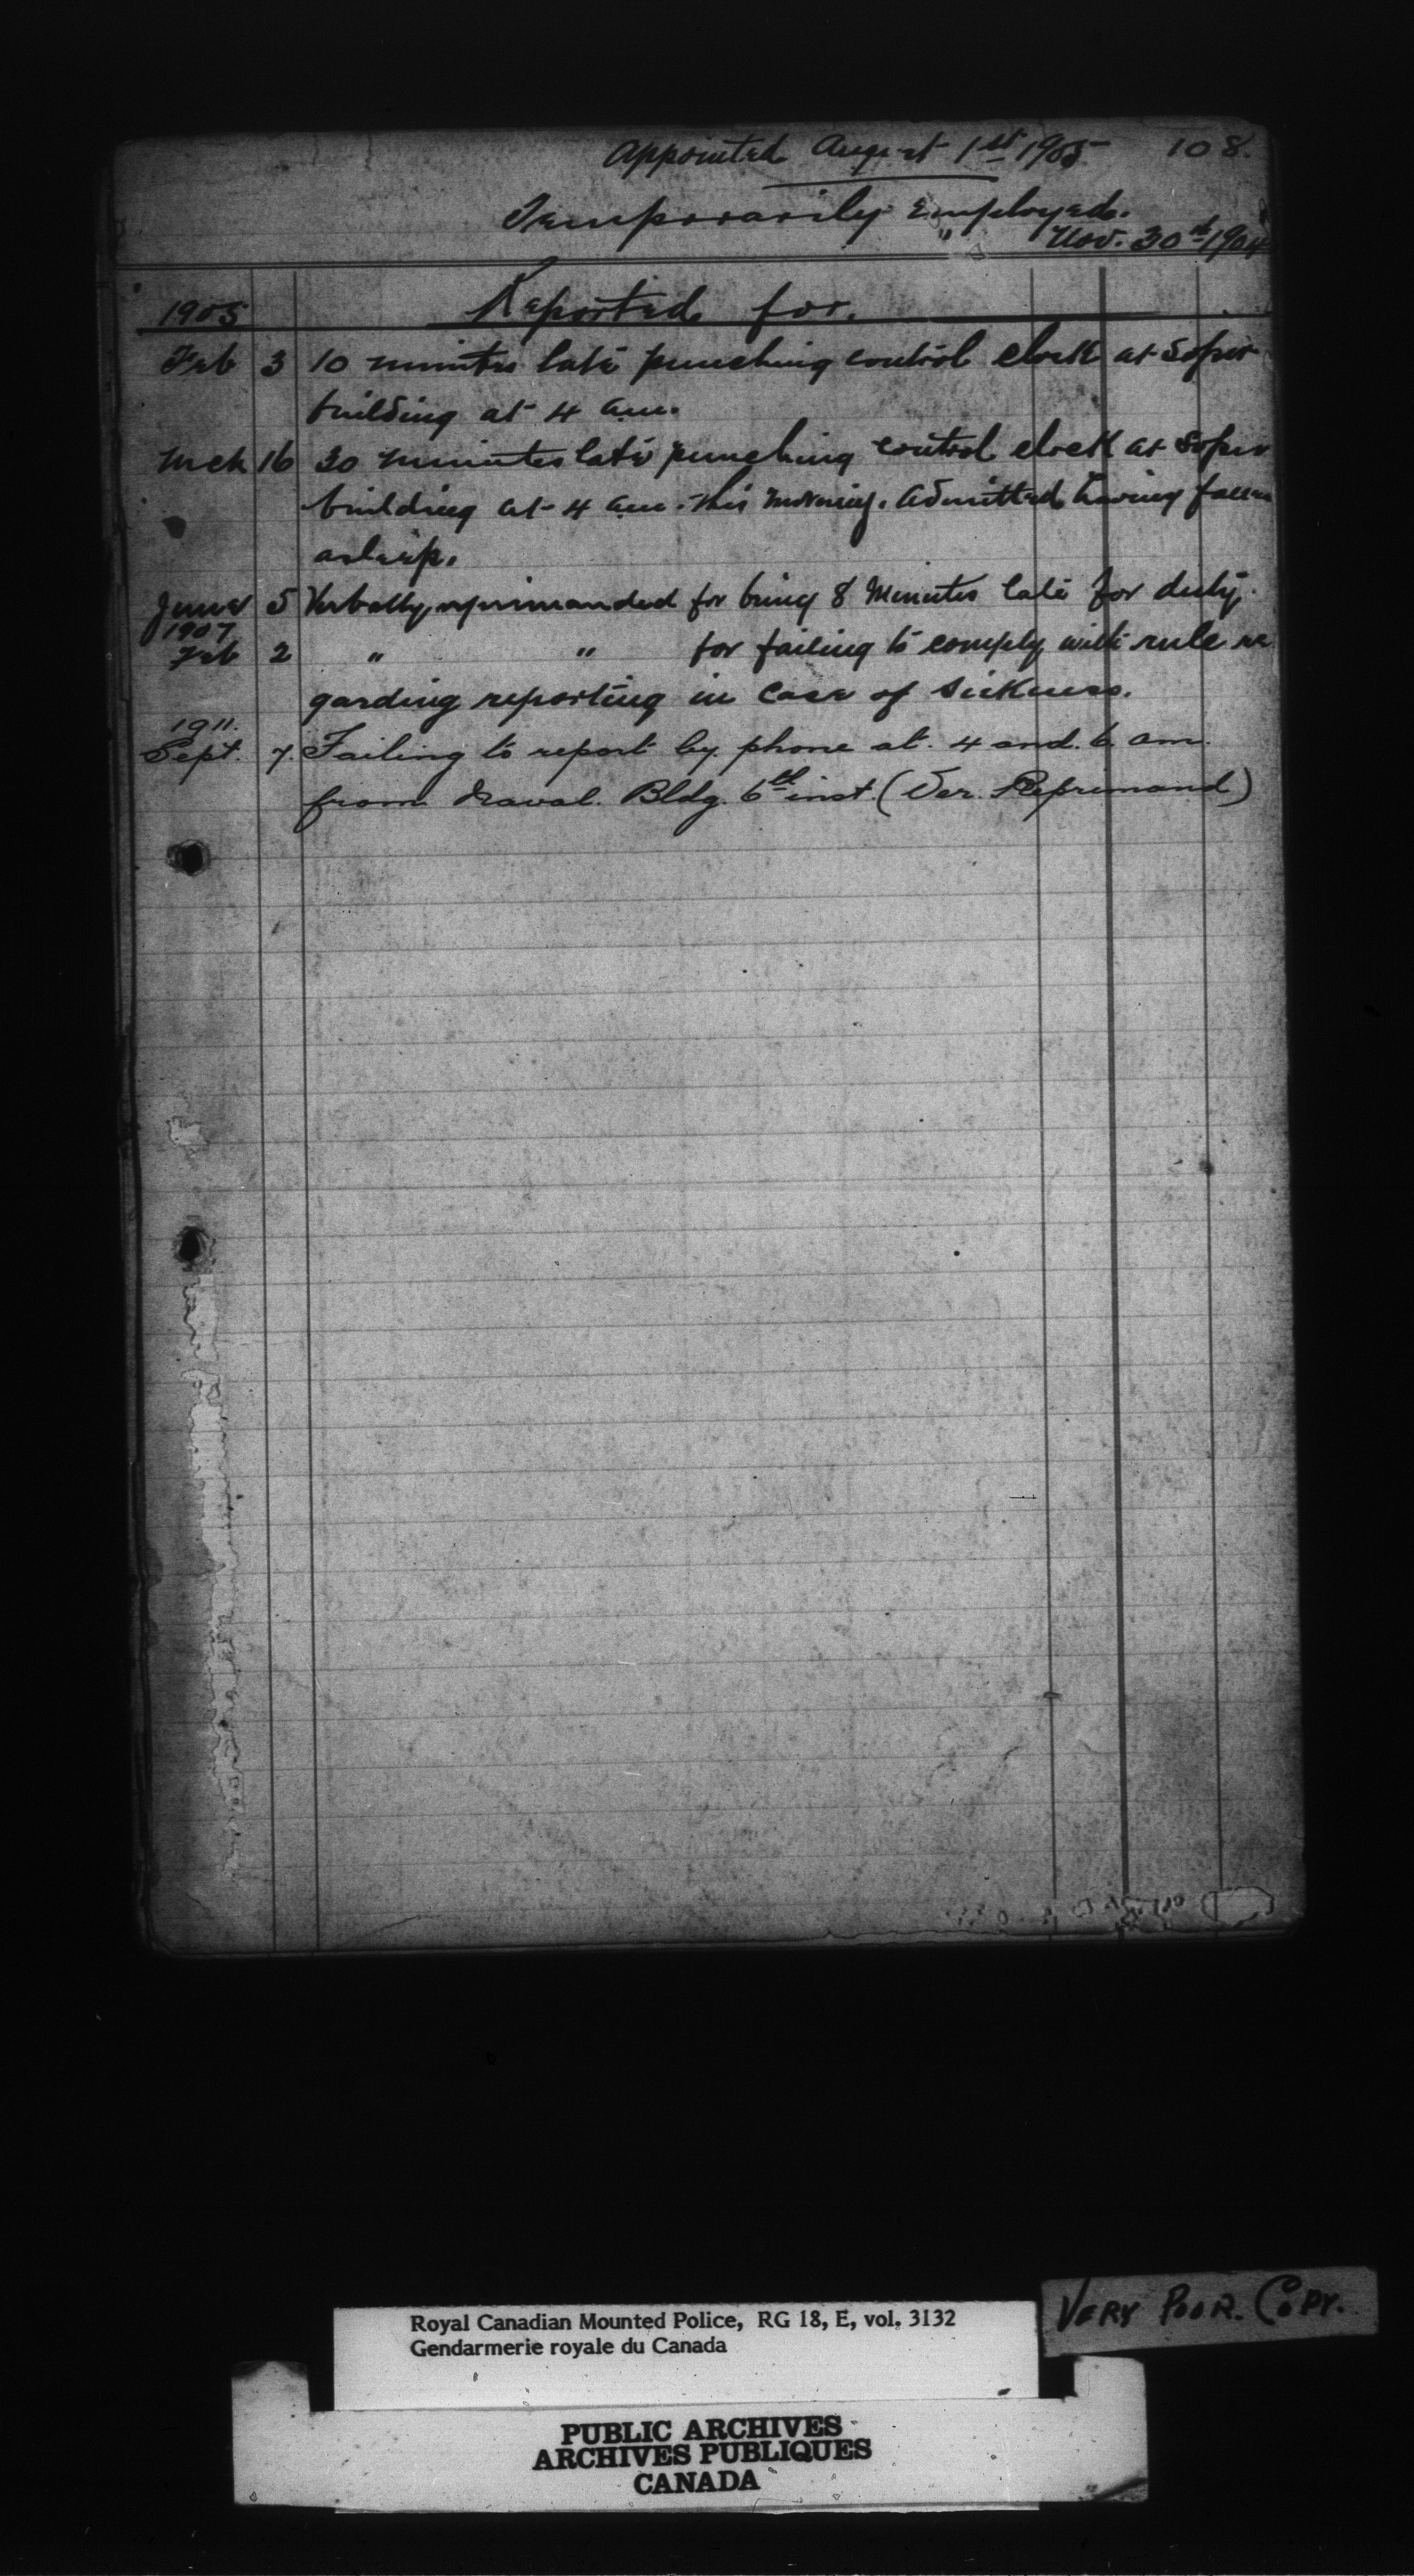 Appointed August 1st 1905 108.
Temporarily Employed.
" Nov. 30th 1904
1905 Reported for.
Feb 3 10 minutes late punching control clock at Soper
building at 4 am.
Mch 16 30 minutes late punching control clock at Soper
building at 4 am. this morning. Admitted having fallen
asleep.
June 5 Verbally reprimanded for being 8 Minutes late for duty.
1907
Feb 2 " " for failing to comply with rule re
garding reporting in Case of Sickness.
1911.
Sept. 7. Failing to report by phone at 4 and 6 am.
from Naval. Bldg. 6th inst. (Ver. Reprimand)
VERY POOR. COPY.
Royal Canadian Mounted Police, RG 18, E, vol. 3132
Gendarmerie royale du Canada
PUBLIC ARCHIVES
ARCHIVES PUBLIQUES
CANADA